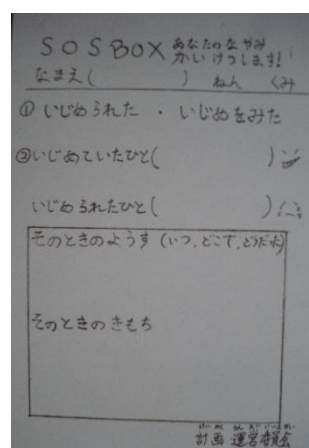 SOSBOX あなたのなやみ
かいけつします!
なまえ(　　　　) ねん くみ
① いじめられた ・ いじめをみた
②いじめていたひと(　　　　)
いじめられたひと(　　　　)
そのときのようす(いつ,どこで,どうだった)
そのときのきもち
計画 運営委員会